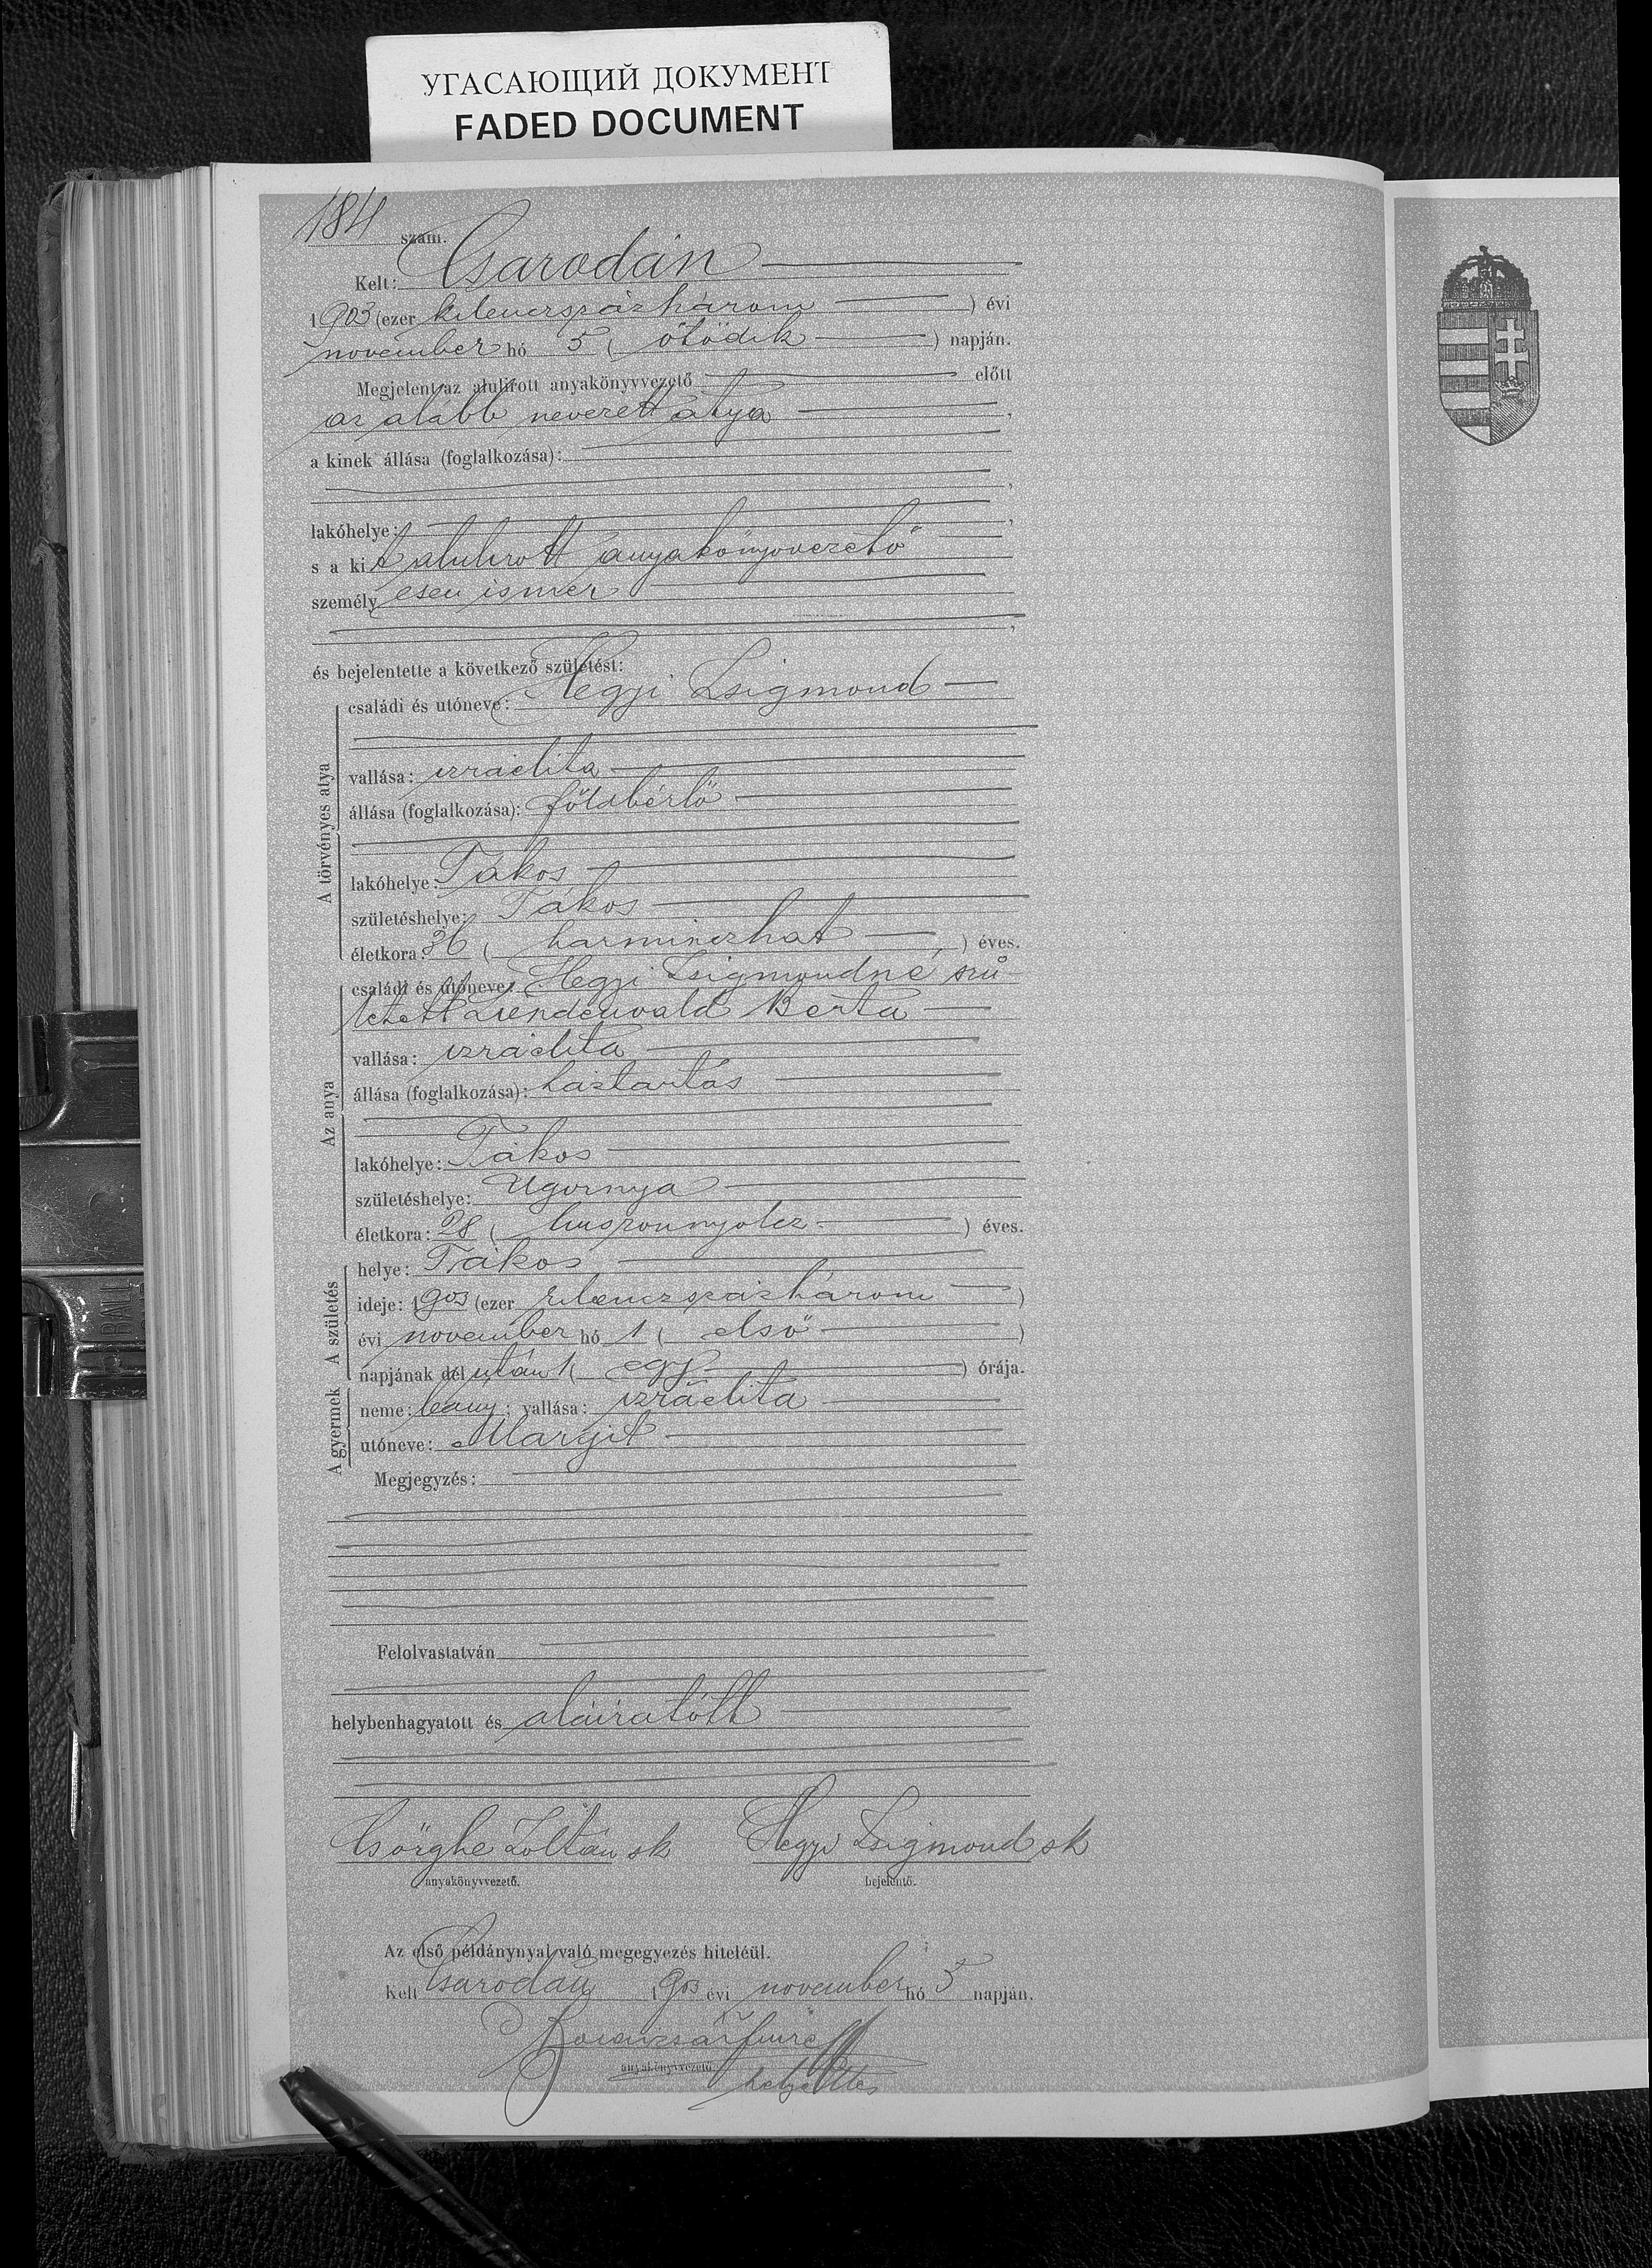 УГАСАЮЩИЙ ДОКУМЕНТ
FADED DOCUMENT
184 szám.
Kelt: Csarodán
1903 (ezer kilenczszázhárom ) évi
november hó 5 ( ötödik ) napján.
Megjelent az alulirott anyakönyvvezető előtt
az alább nevezett atya ,
a kinek állása (foglalkozása):
,
lakóhelye: ,
s a kit alulirott anyakönyvvezető
személyesen ismer
,
és bejelentette a következő születést:
A törvényes atya
családi és utóneve: Hegyi Zsigmond
vallása: izraelita
állása (foglalkozása): földbérlő
lakóhelye: Tákos
születéshelye: Tákos
életkora: 36 ( harminczhat ) éves.
Az anya
családi és utóneve: Hegyi Zsigmondné szü
letett Berta
vallása: izraelita
állása (foglalkozása): háztartás
lakóhelye: Tákos
születéshelye: Ugornya
életkora: 28 ( huszonnyolcz ) éves.
A születés
helye: Tákos
ideje: 1903 (ezer kilenczszázhárom )
évi november hó 1 ( első )
napjának dél után 1 ( egy ) órája.
A gyermek
neme: leány; vallása: izraelita
utóneve: Margit
Megjegyzés:
Felolvastatván
helybenhagyatott és aláiratott
Csörghe Zoltán sk Hegyi Zsigmond sk
anyakönyvvezető. bejelentő.
Az első példánynyal való megegyezés hiteléül.
Kelt Csarodán 1903 évi november hó 5 napján.
anyakönyvvezető.
helyettes